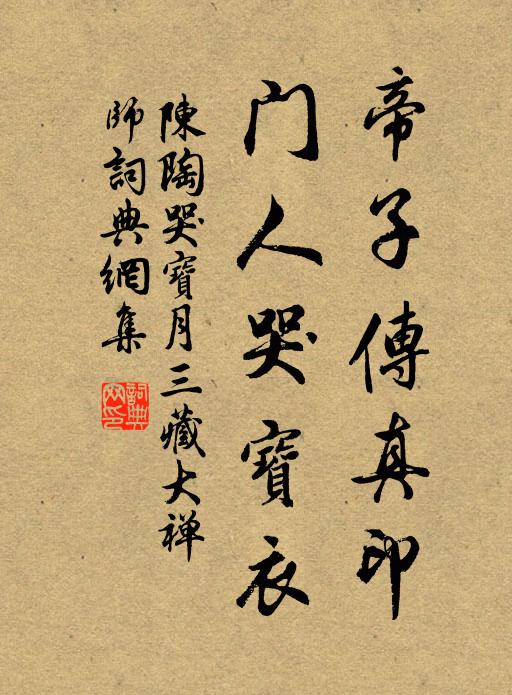 帝子傳真印
門人哭寶衣
陳陶哭寶月三藏大禅
師詞典網集
詞典
网印